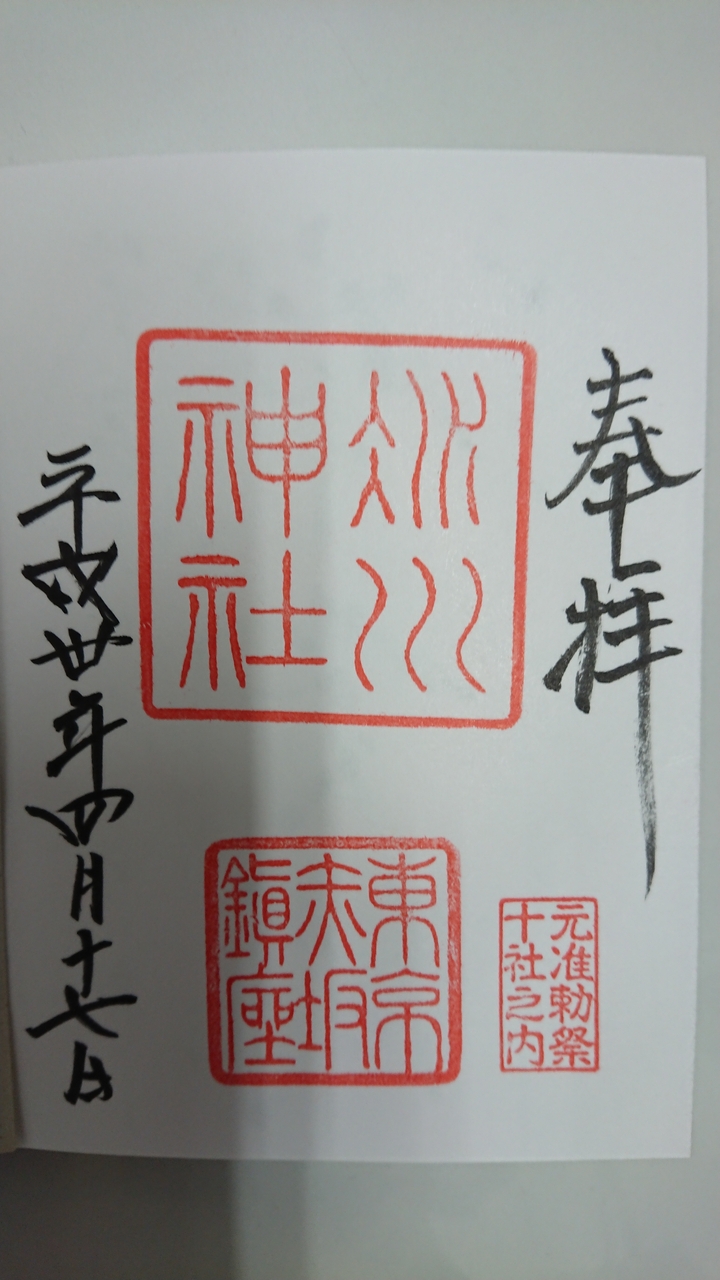 奉拝
氷川
神社
元准勅祭
十社之内
東京
赤坂
鎮座
平成卅年四月十七日